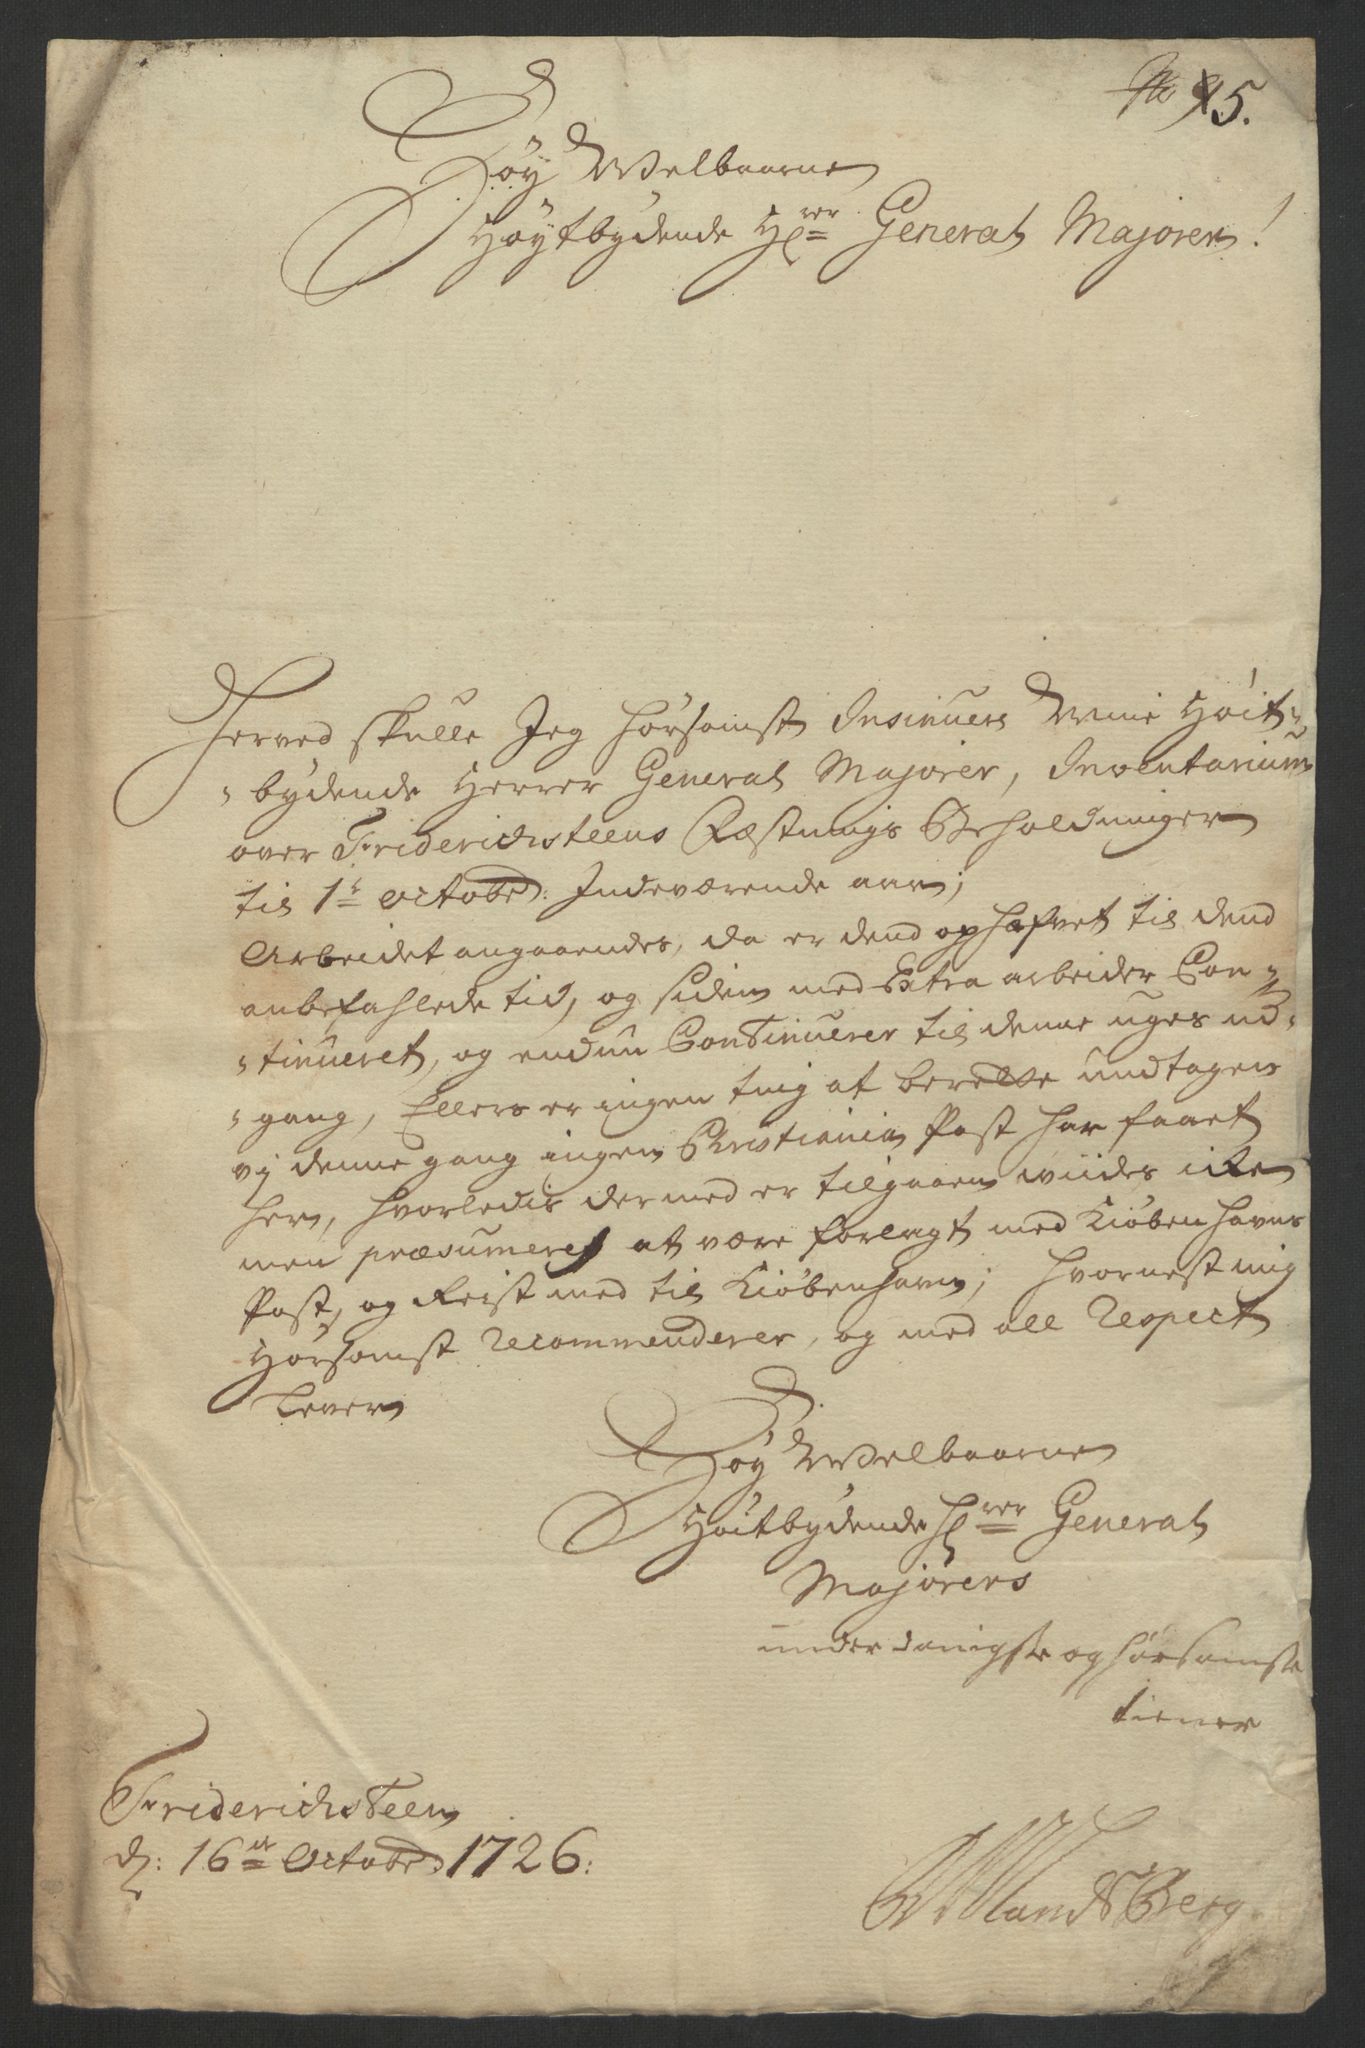 No 15.
Høy Welbaarne
Høytbydende Hrer General Majorer!
Herved skulle Jeg hørsomst Insinuere Mine Høit-
-bydende Herrer General Majorer, Inventarium
over Friderichsteens Fæstnings Beholdninger
til 1te Octobr: Indeværende aar;
Arbeidet angaaendes, da er dend ophæfvet til dend
anbefahlede tid, og siden med Extra arbeider Con-
-tinueret, og endnu Continuerer til denne uges ud-
-gang, Ellers er ingen ting at berette undtagen
vj denne gang ingen Christiania Post har faaet
her, hvorledis dermed er tilgaaen wiides iche
men præsumeres at være forlagt med Kiøbenhavns
Post, og Reist med til Kiøbenhavn; hvornest mig
Hørsomst Recommenderer, og med all Respect
Lever
Høy Welbaarne
Høitbydende Hrer General
Majorers
underdanigste og hørsomste
tiener
Friderichsteen
d: 16de Octobr: 1726:
Landsberg